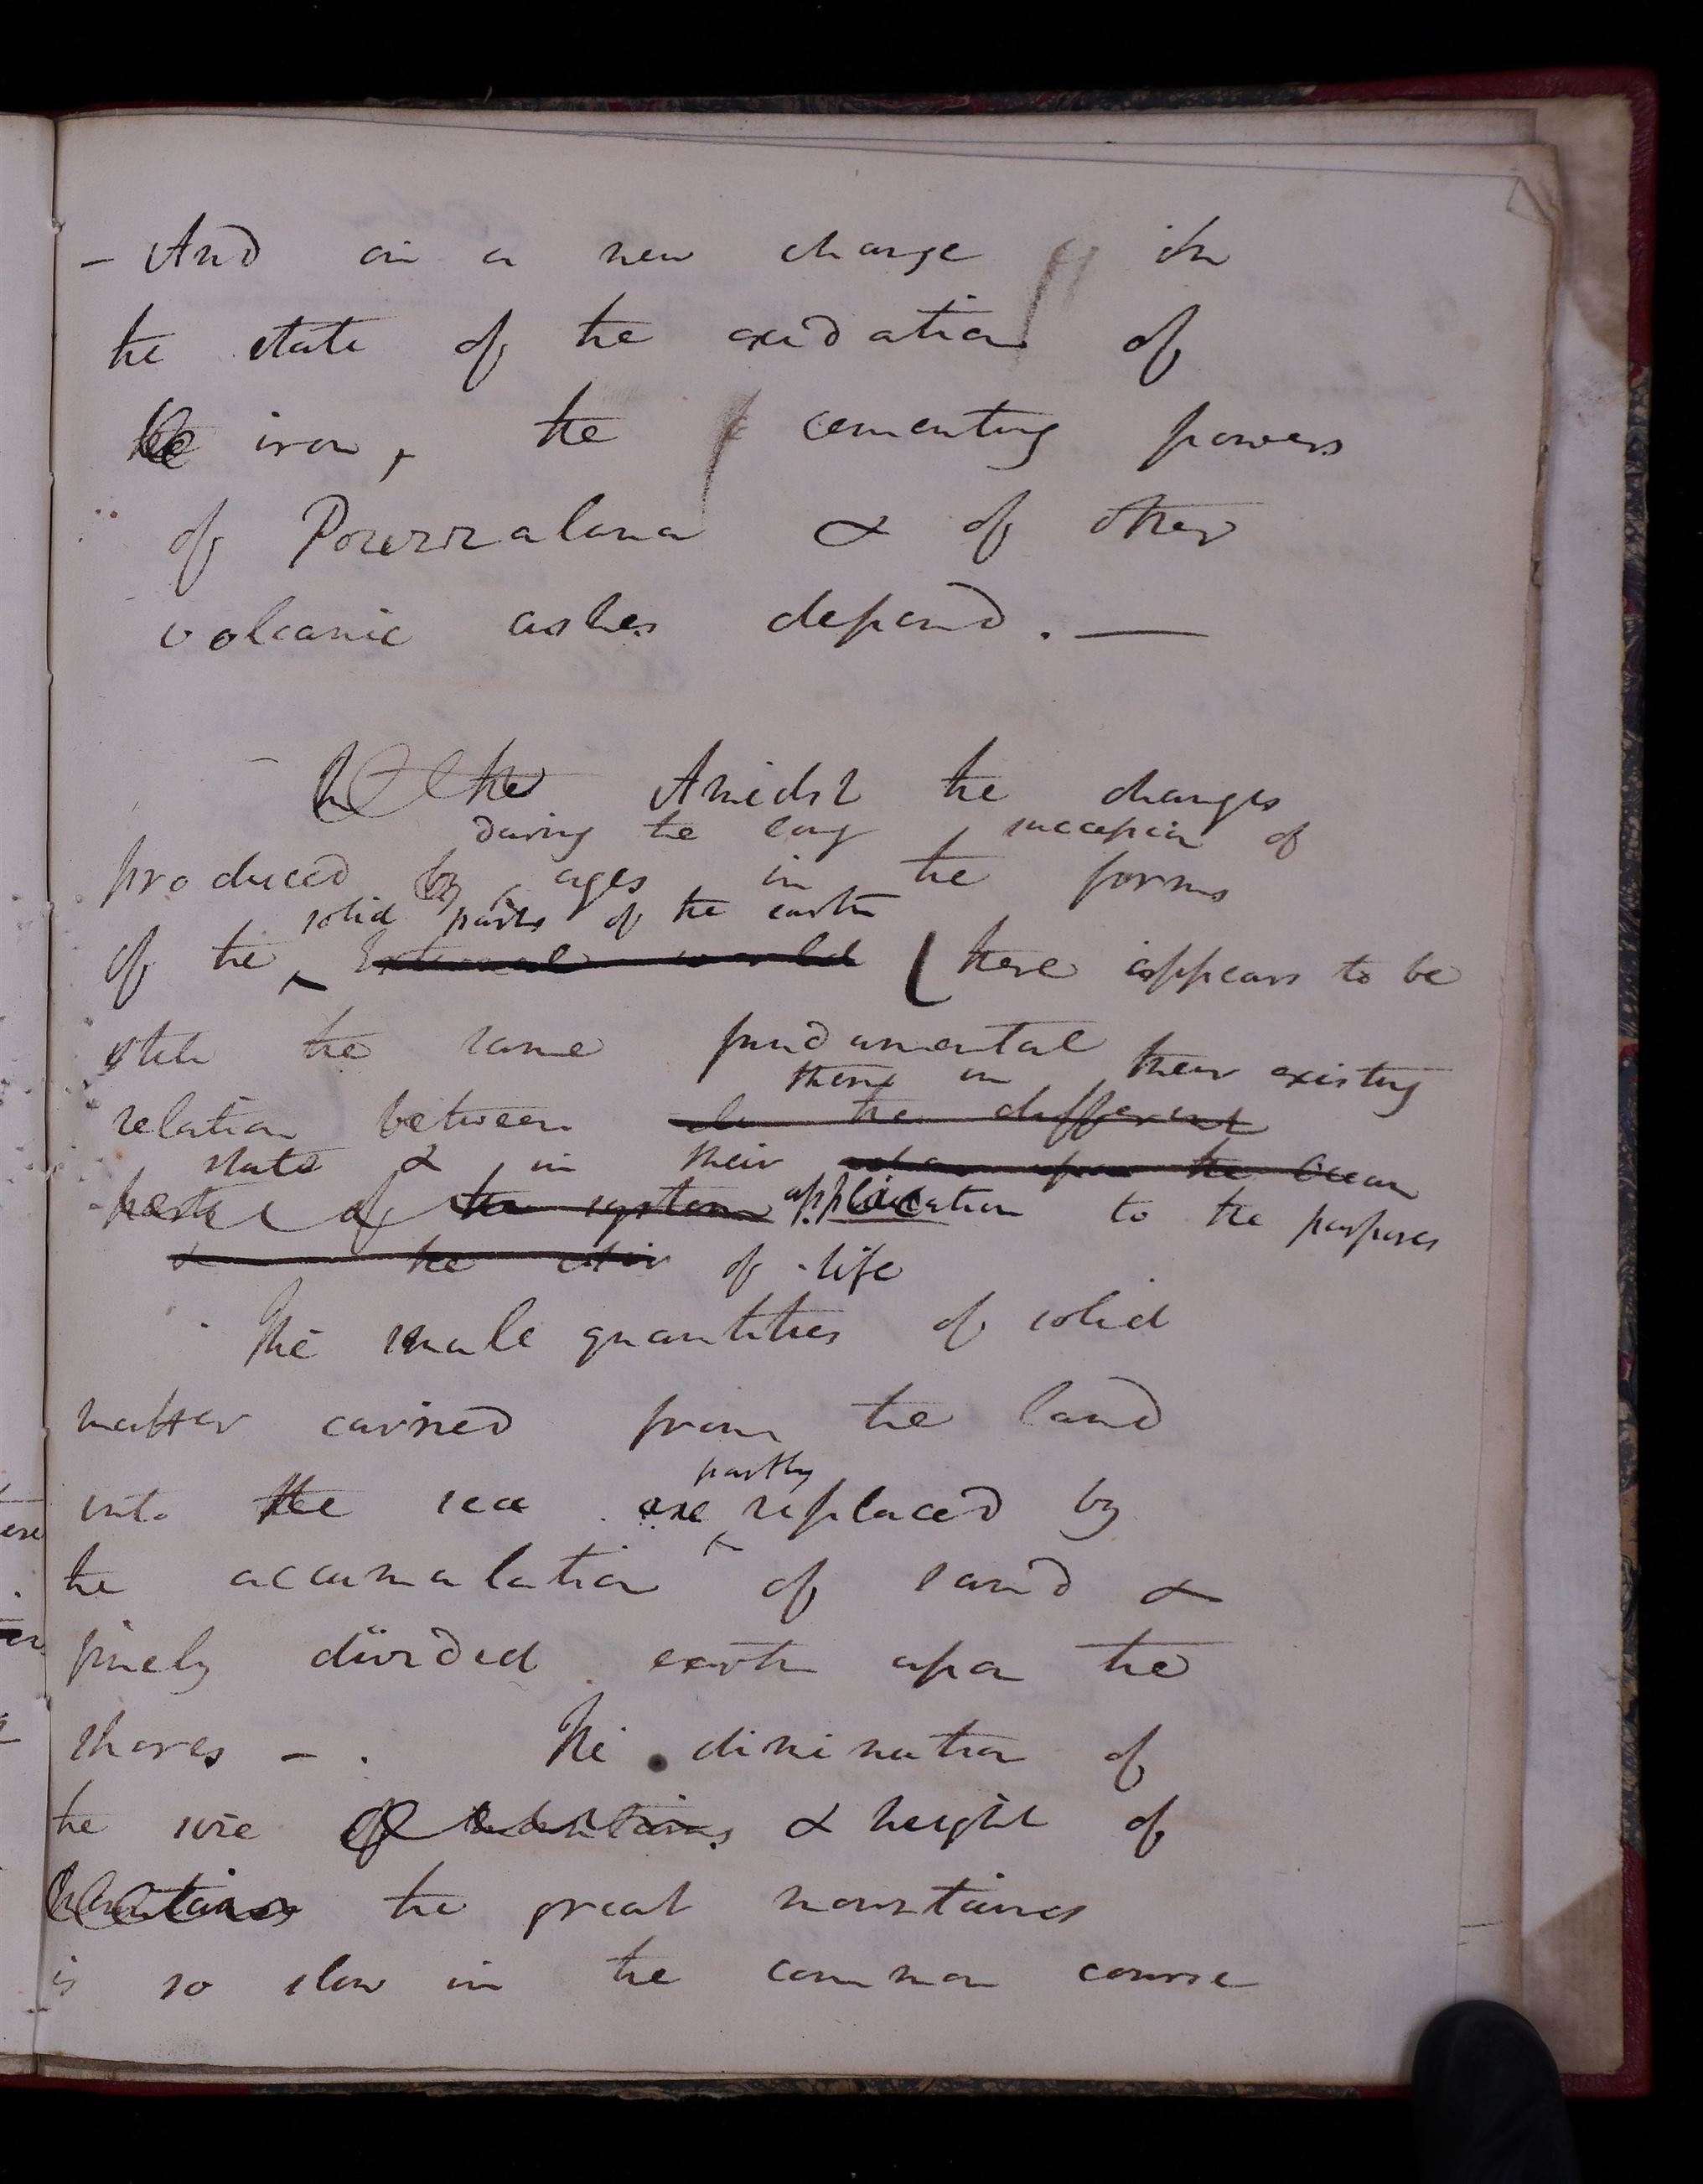 - And on a new change in
the state of the oxidation of
the iron, the cementing powers
of Pouzzalana & of other
volcanic ashes depend. —
the Amidst the changes
during the long succession of
produced by ages in the forms
solid parts of the earth
of the External world (there appears to be
still the same fundamental
them in their existing
relation between the different
state & in their upon the Ocean
parts of the system application to the purposes
& the of life
The small quantities of solid
matter carried from the land
partly
into the sea are replaced by
the accumulation of sand &
finely divided earth upon the
shores - . The diminution of
the size of mountains & height of
mountains the great mountains
is so slow in the common course